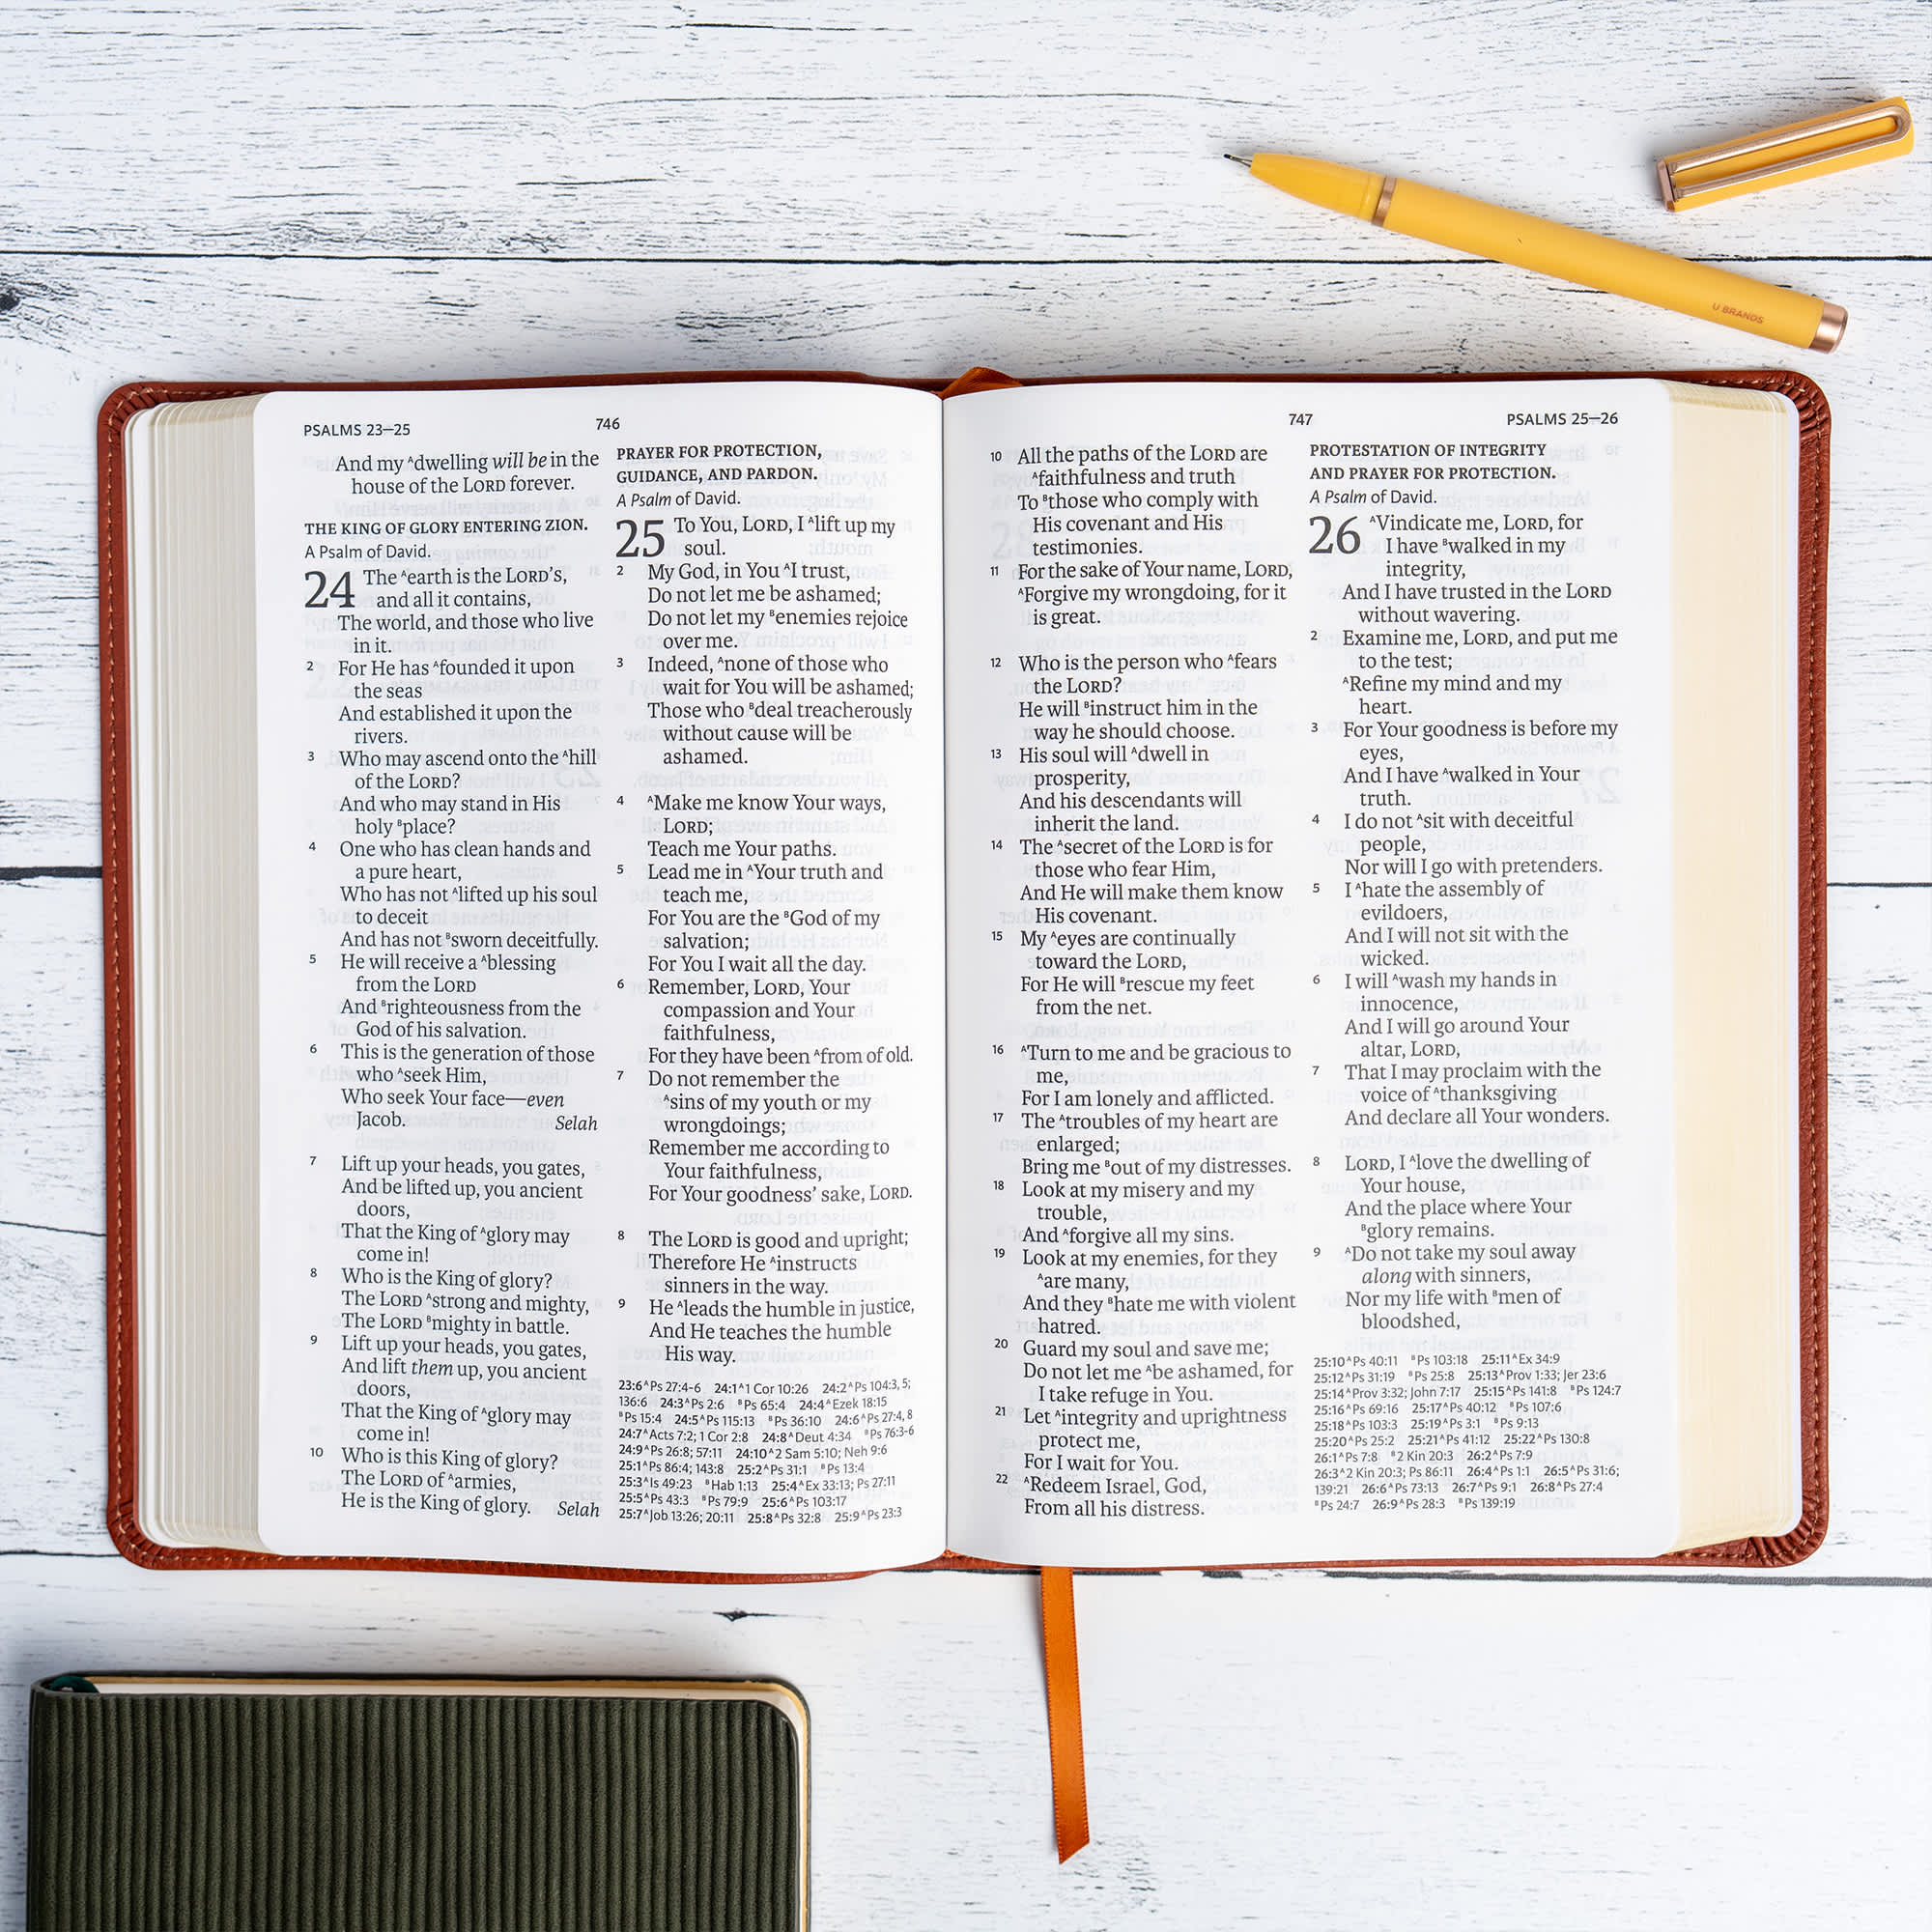 U BRANDS
PSALMS 23—25
746
And my ᴬdwelling will be in the
house of the LORD forever.
THE KING OF GLORY ENTERING ZION.
A Psalm of David.
24 The ᴬearth is the LORD’s,
and all it contains,
The world, and those who live
in it.
2 For He has ᴬfounded it upon
the seas
And established it upon the
rivers.
3 Who may ascend onto the ᴬhill
of the LORD?
And who may stand in His
holy ᴮplace?
4 One who has clean hands and
a pure heart,
Who has not ᴬlifted up his soul
to deceit
And has not ᴮsworn deceitfully.
5 He will receive a ᴬblessing
from the LORD
And ᴮrighteousness from the
God of his salvation.
6 This is the generation of those
who ᴬseek Him,
Who seek Your face—even
Jacob. Selah
7 Lift up your heads, you gates,
And be lifted up, you ancient
doors,
That the King of ᴬglory may
come in!
8 Who is the King of glory?
The LORD ᴬstrong and mighty,
The LORD ᴮmighty in battle.
9 Lift up your heads, you gates,
And lift them up, you ancient
doors,
That the King of ᴬglory may
come in!
10 Who is this King of glory?
The LORD of ᴬarmies,
He is the King of glory. Selah
PRAYER FOR PROTECTION,
GUIDANCE, AND PARDON.
A Psalm of David.
25 To You, LORD, I ᴬlift up my
soul.
2 My God, in You ᴬI trust,
Do not let me be ashamed;
Do not let my ᴮenemies rejoice
over me.
3 Indeed, ᴬnone of those who
wait for You will be ashamed;
Those who ᴮdeal treacherously
without cause will be
ashamed.
4 ᴬMake me know Your ways,
LORD;
Teach me Your paths.
5 Lead me in ᴬYour truth and
teach me,
For You are the ᴮGod of my
salvation;
For You I wait all the day.
6 Remember, LORD, Your
compassion and Your
faithfulness,
For they have been ᴬfrom of old.
7 Do not remember the
ᴬsins of my youth or my
wrongdoings;
Remember me according to
Your faithfulness,
For Your goodness’ sake, LORD.
8 The LORD is good and upright;
Therefore He ᴬinstructs
sinners in the way.
9 He ᴬleads the humble in justice,
And He teaches the humble
His way.
23:6 ᴬPs 27:4-6 24:1 ᴬ1 Cor 10:26 24:2 ᴬPs 104:3, 5;
136:6 24:3 ᴬPs 2:6 ᴮPs 65:4 24:4 ᴬEzek 18:15
ᴮPs 15:4 24:5 ᴬPs 115:13 ᴮPs 36:10 24:6 ᴬPs 27:4, 8
24:7 ᴬActs 7:2; 1 Cor 2:8 24:8 ᴬDeut 4:34 ᴮPs 76:3-6
24:9 ᴬPs 26:8; 57:11 24:10 ᴬ2 Sam 5:10; Neh 9:6
25:1 ᴬPs 86:4; 143:8 25:2 ᴬPs 31:1 ᴮPs 13:4
25:3 ᴬIs 49:23 ᴮHab 1:13 25:4 ᴬEx 33:13; Ps 27:11
25:5 ᴬPs 43:3 ᴮPs 79:9 25:6 ᴬPs 103:17
25:7 ᴬJob 13:26; 20:11 25:8 ᴬPs 32:8 25:9 ᴬPs 23:3
747
PSALMS 25—26
10 All the paths of the LORD are
ᴬfaithfulness and truth
To ᴮthose who comply with
His covenant and His
testimonies.
11 For the sake of Your name, LORD,
ᴬForgive my wrongdoing, for it
is great.
12 Who is the person who ᴬfears
the LORD?
He will ᴮinstruct him in the
way he should choose.
13 His soul will ᴬdwell in
prosperity,
And his descendants will
inherit the land.
14 The ᴬsecret of the LORD is for
those who fear Him,
And He will make them know
His covenant.
15 My ᴬeyes are continually
toward the LORD,
For He will ᴮrescue my feet
from the net.
16 ᴬTurn to me and be gracious to
me,
For I am lonely and afflicted.
17 The ᴬtroubles of my heart are
enlarged;
Bring me ᴮout of my distresses.
18 Look at my misery and my
trouble,
And ᴬforgive all my sins.
19 Look at my enemies, for they
ᴬare many,
And they ᴮhate me with violent
hatred.
20 Guard my soul and save me;
Do not let me ᴬbe ashamed, for
I take refuge in You.
21 Let ᴬintegrity and uprightness
protect me,
For I wait for You.
22 ᴬRedeem Israel, God,
From all his distress.
PROTESTATION OF INTEGRITY
AND PRAYER FOR PROTECTION.
A Psalm of David.
26 ᴬVindicate me, LORD, for
I have ᴮwalked in my
integrity,
And I have trusted in the LORD
without wavering.
2 Examine me, LORD, and put me
to the test;
ᴬRefine my mind and my
heart.
3 For Your goodness is before my
eyes,
And I have ᴬwalked in Your
truth.
4 I do not ᴬsit with deceitful
people,
Nor will I go with pretenders.
5 I ᴬhate the assembly of
evildoers,
And I will not sit with the
wicked.
6 I will ᴬwash my hands in
innocence,
And I will go around Your
altar, LORD,
7 That I may proclaim with the
voice of ᴬthanksgiving
And declare all Your wonders.
8 LORD, I ᴬlove the dwelling of
Your house,
And the place where Your
ᴮglory remains.
9 ᴬDo not take my soul away
along with sinners,
Nor my life with ᴮmen of
bloodshed,
25:10 ᴬPs 40:11 ᴮPs 103:18 25:11 ᴬEx 34:9
25:12 ᴬPs 31:19 ᴮPs 25:8 25:13 ᴬProv 1:33; Jer 23:6
25:14 ᴬProv 3:32; John 7:17 25:15 ᴬPs 141:8 ᴮPs 124:7
25:16 ᴬPs 69:16 25:17 ᴬPs 40:12 ᴮPs 107:6
25:18 ᴬPs 103:3 25:19 ᴬPs 3:1 ᴮPs 9:13
25:20 ᴬPs 25:2 25:21 ᴬPs 41:12 25:22 ᴬPs 130:8
26:1 ᴬPs 7:8 ᴮ2 Kin 20:3 26:2 ᴬPs 7:9
26:3 ᴬ2 Kin 20:3; Ps 86:11 26:4 ᴬPs 1:1 26:5 ᴬPs 31:6;
139:21 26:6 ᴬPs 73:13 26:7 ᴬPs 9:1 26:8 ᴬPs 27:4
ᴮPs 24:7 26:9 ᴬPs 28:3 ᴮPs 139:19